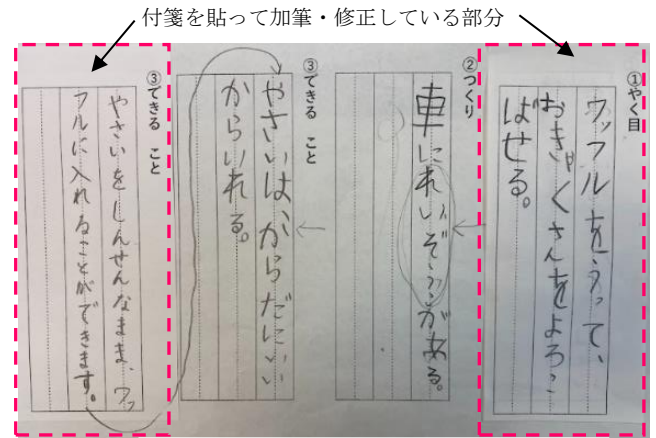 付箋を貼って加筆・修正している部分
①やく目
ワッフルをうって、
おきゃくさんをよろこ
ばせる。
②つくり
車にれいぞうこがある。
③できる こと
やさいは、からだにいい
からいれる。
③できる こと
やさいをしんせんなまま、ワッ
フルに入れることができます。